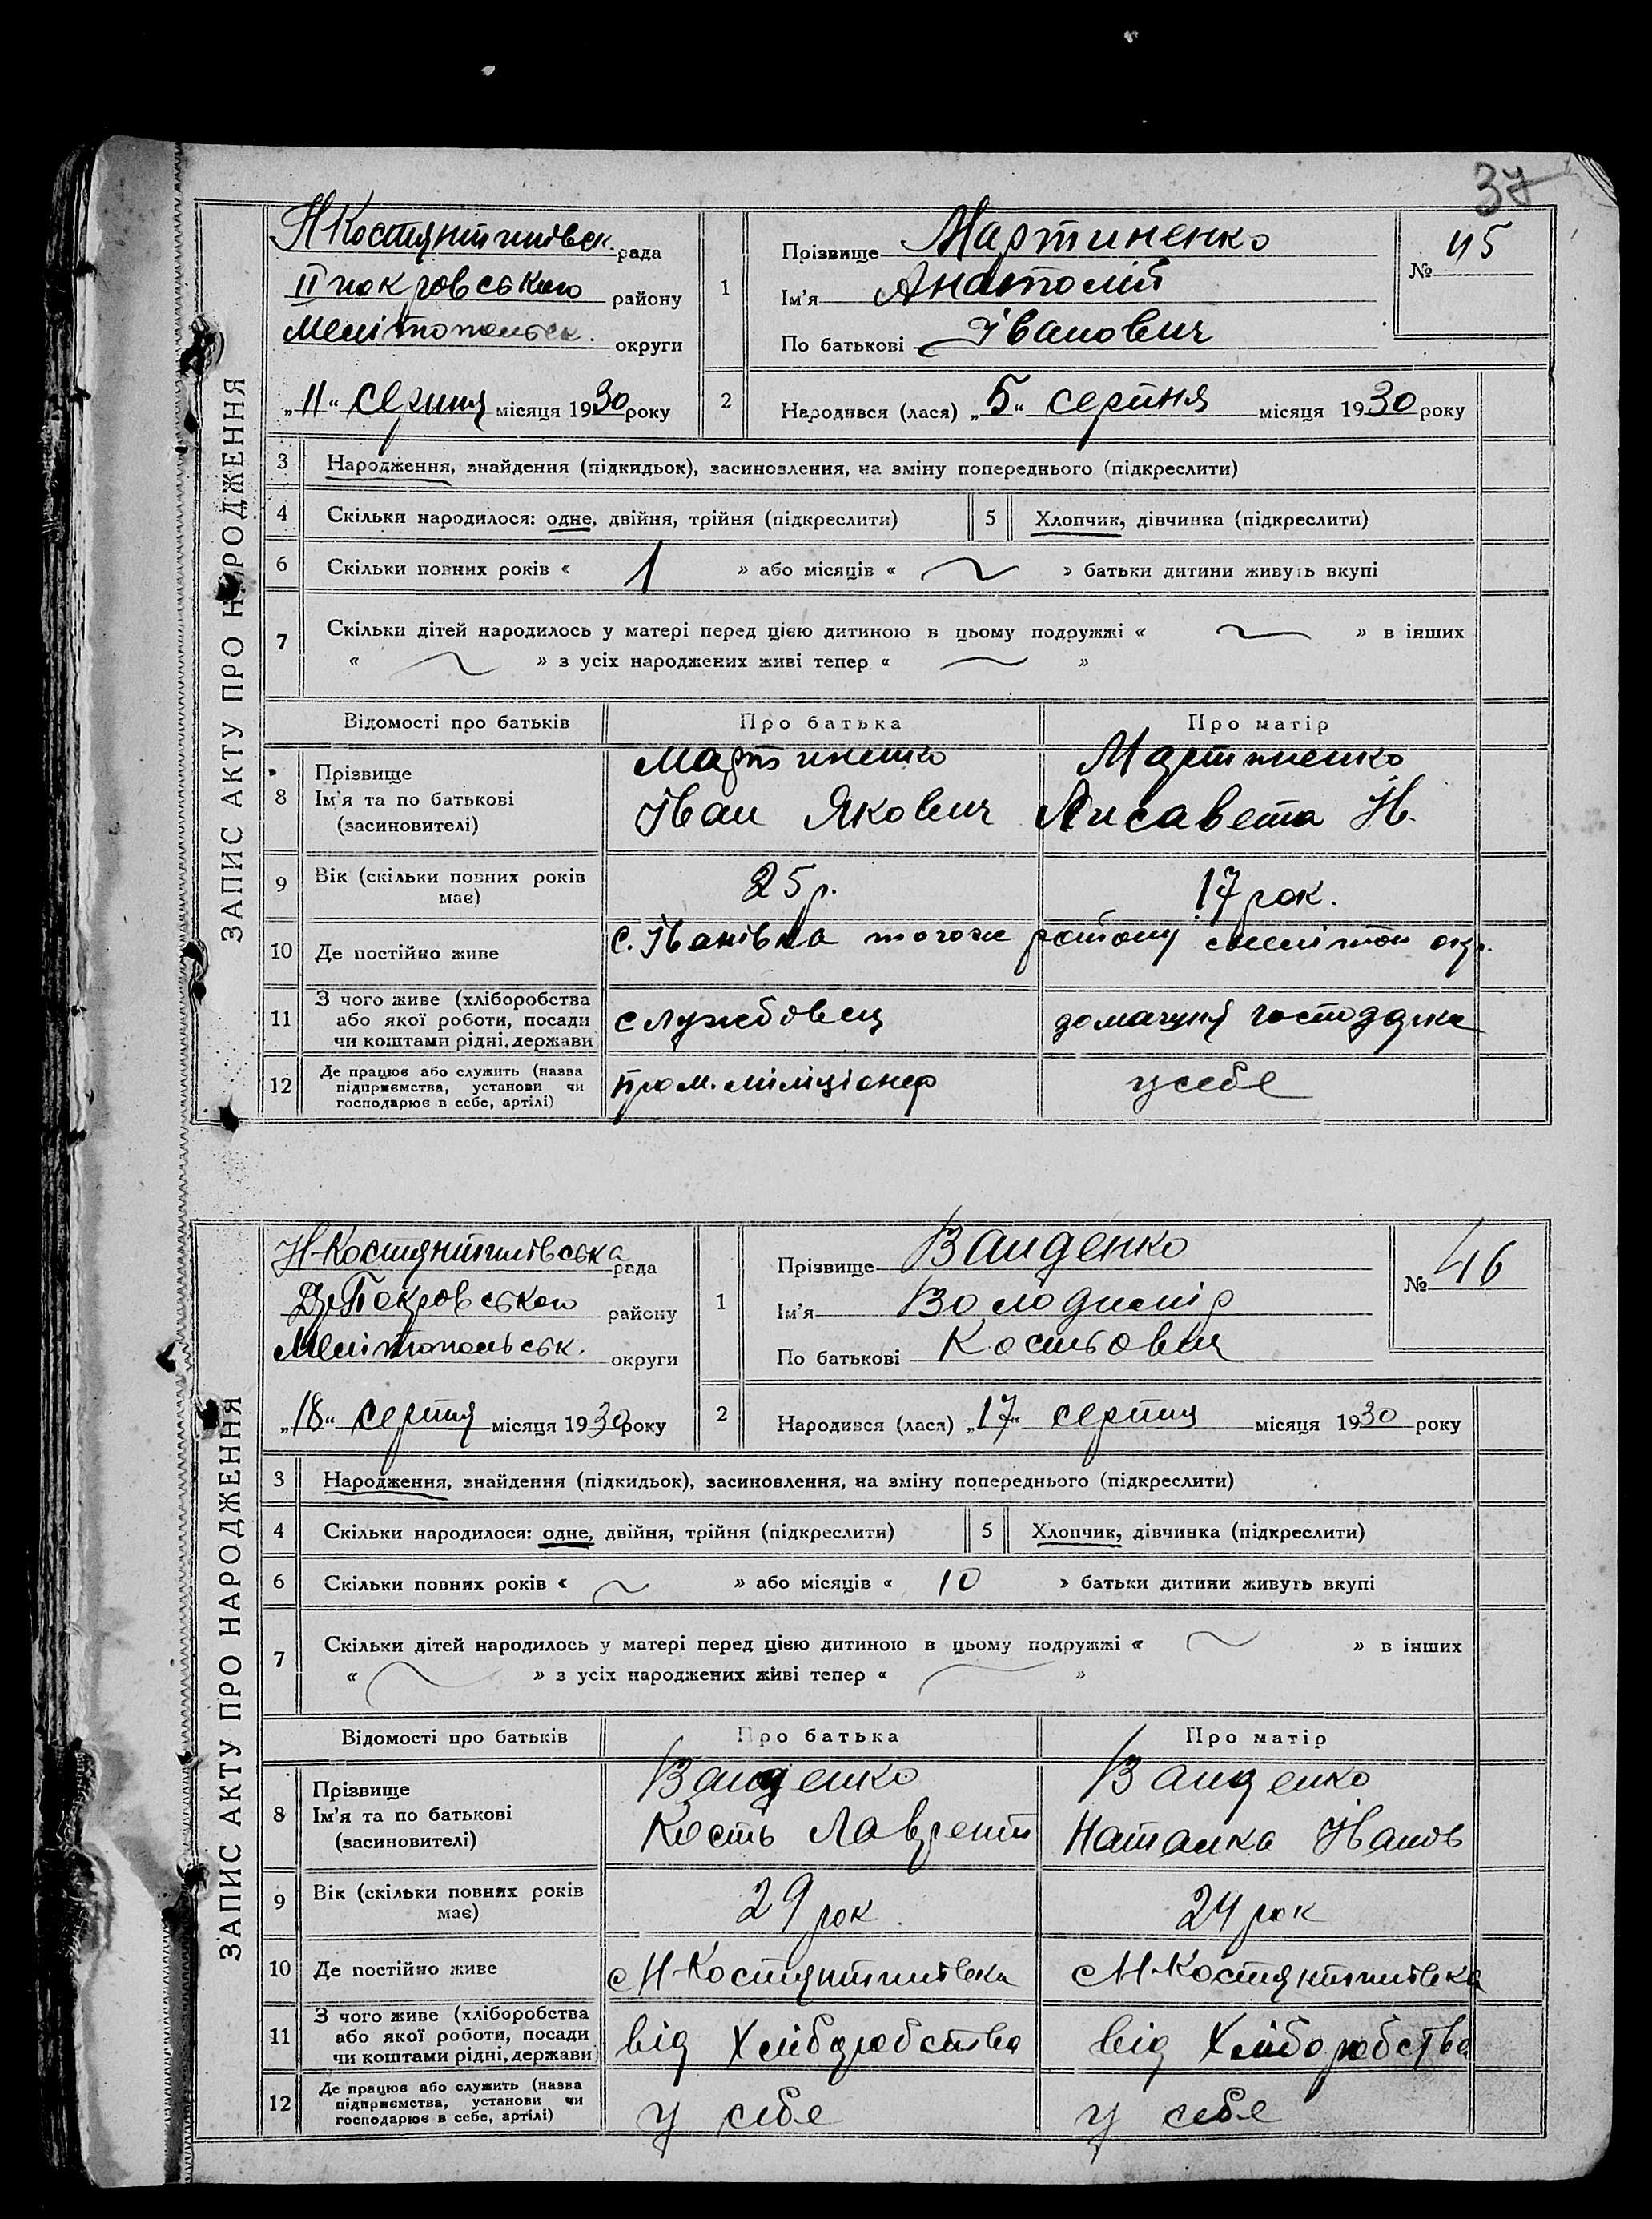 37
ЗАПИС АКТУ ПРО НАРОДЖЕННЯ
Н Костянтинівськ. рада
ІІ покровського району
Мелітопольськ. округи
„11“ серпня місяця 1930 року
1
Прізвище Мартиненко
Ім'я Анатолій
По батькові Іванович
№ 45
2
Народився (лася) „5“ серпня місяця 1930 року
3 Народження, знайдення (підкидьок), засиновлення, на зміну попереднього (підкреслити)
4 Скільки народилося: одне, двійня, трійня (підкреслити) 5 Хлопчик, дівчинка (підкреслити)
6 Скільки повних років « 1 » або місяців « ~ » батьки дитини живуть вкупі
7 Скільки дітей народилось у матері перед цією дитиною в цьому подружжі « ~ » в інших
« ~ » з усіх народжених живі тепер « ~ »
Відомості про батьків Про батька Про матір
8 Прізвище
Ім'я та по батькові
(засиновителі)
Мартиненко
Іван Якович
Мартиненко
Лисавета Ів.
9 Вік (скільки повних років має) 25 р. 17 рок.
10 Де постійно живе с. Іванівка того ж району Меліт окр.
11 З чого живе (хліборобства
або якої роботи, посади
чи коштами рідні, держави
службовец
домашня господарка
12 Де працює або служить (назва
підприємства, установи чи
господарює в себе, артілі)
пром. міліціонер
у себе
ЗАПИС АКТУ ПРО НАРОДЖЕННЯ
Н-Костянтинівська рада
Др Покровського району
Мелітопольськ. округи
„18“ серпня місяця 1930 року
1
Прізвище Ванденко
Ім'я Володимір
По батькові Костьович
№ 46
2
Народився (лася) „17“ серпня місяця 1930 року
3 Народження, знайдення (підкидьок), засиновлення, на зміну попереднього (підкреслити)
4 Скільки народилося: одне, двійня, трійня (підкреслити) 5 Хлопчик, дівчинка (підкреслити)
6 Скільки повних років « ~ » або місяців « 10 » батьки дитини живуть вкупі
7 Скільки дітей народилось у матері перед цією дитиною в цьому подружжі « ~ » в інших
« ~ » з усіх народжених живі тепер « ~ »
Відомості про батьків Про батька Про матір
8 Прізвище
Ім'я та по батькові
(засиновителі)
Ванденко
Кость Лаврент
Ванденко
Наталка Іванов
9 Вік (скільки повних років має) 29 рок. 24 рок
10 Де постійно живе с Н-Костянтинівка с Н-Костянтинівка
11 З чого живе (хліборобства
або якої роботи, посади
чи коштами рідні, держави
від Хліборобства
від Хліборобства
12 Де працює або служить (назва
підприємства, установи чи
господарює в себе, артілі)
у себе
у себе